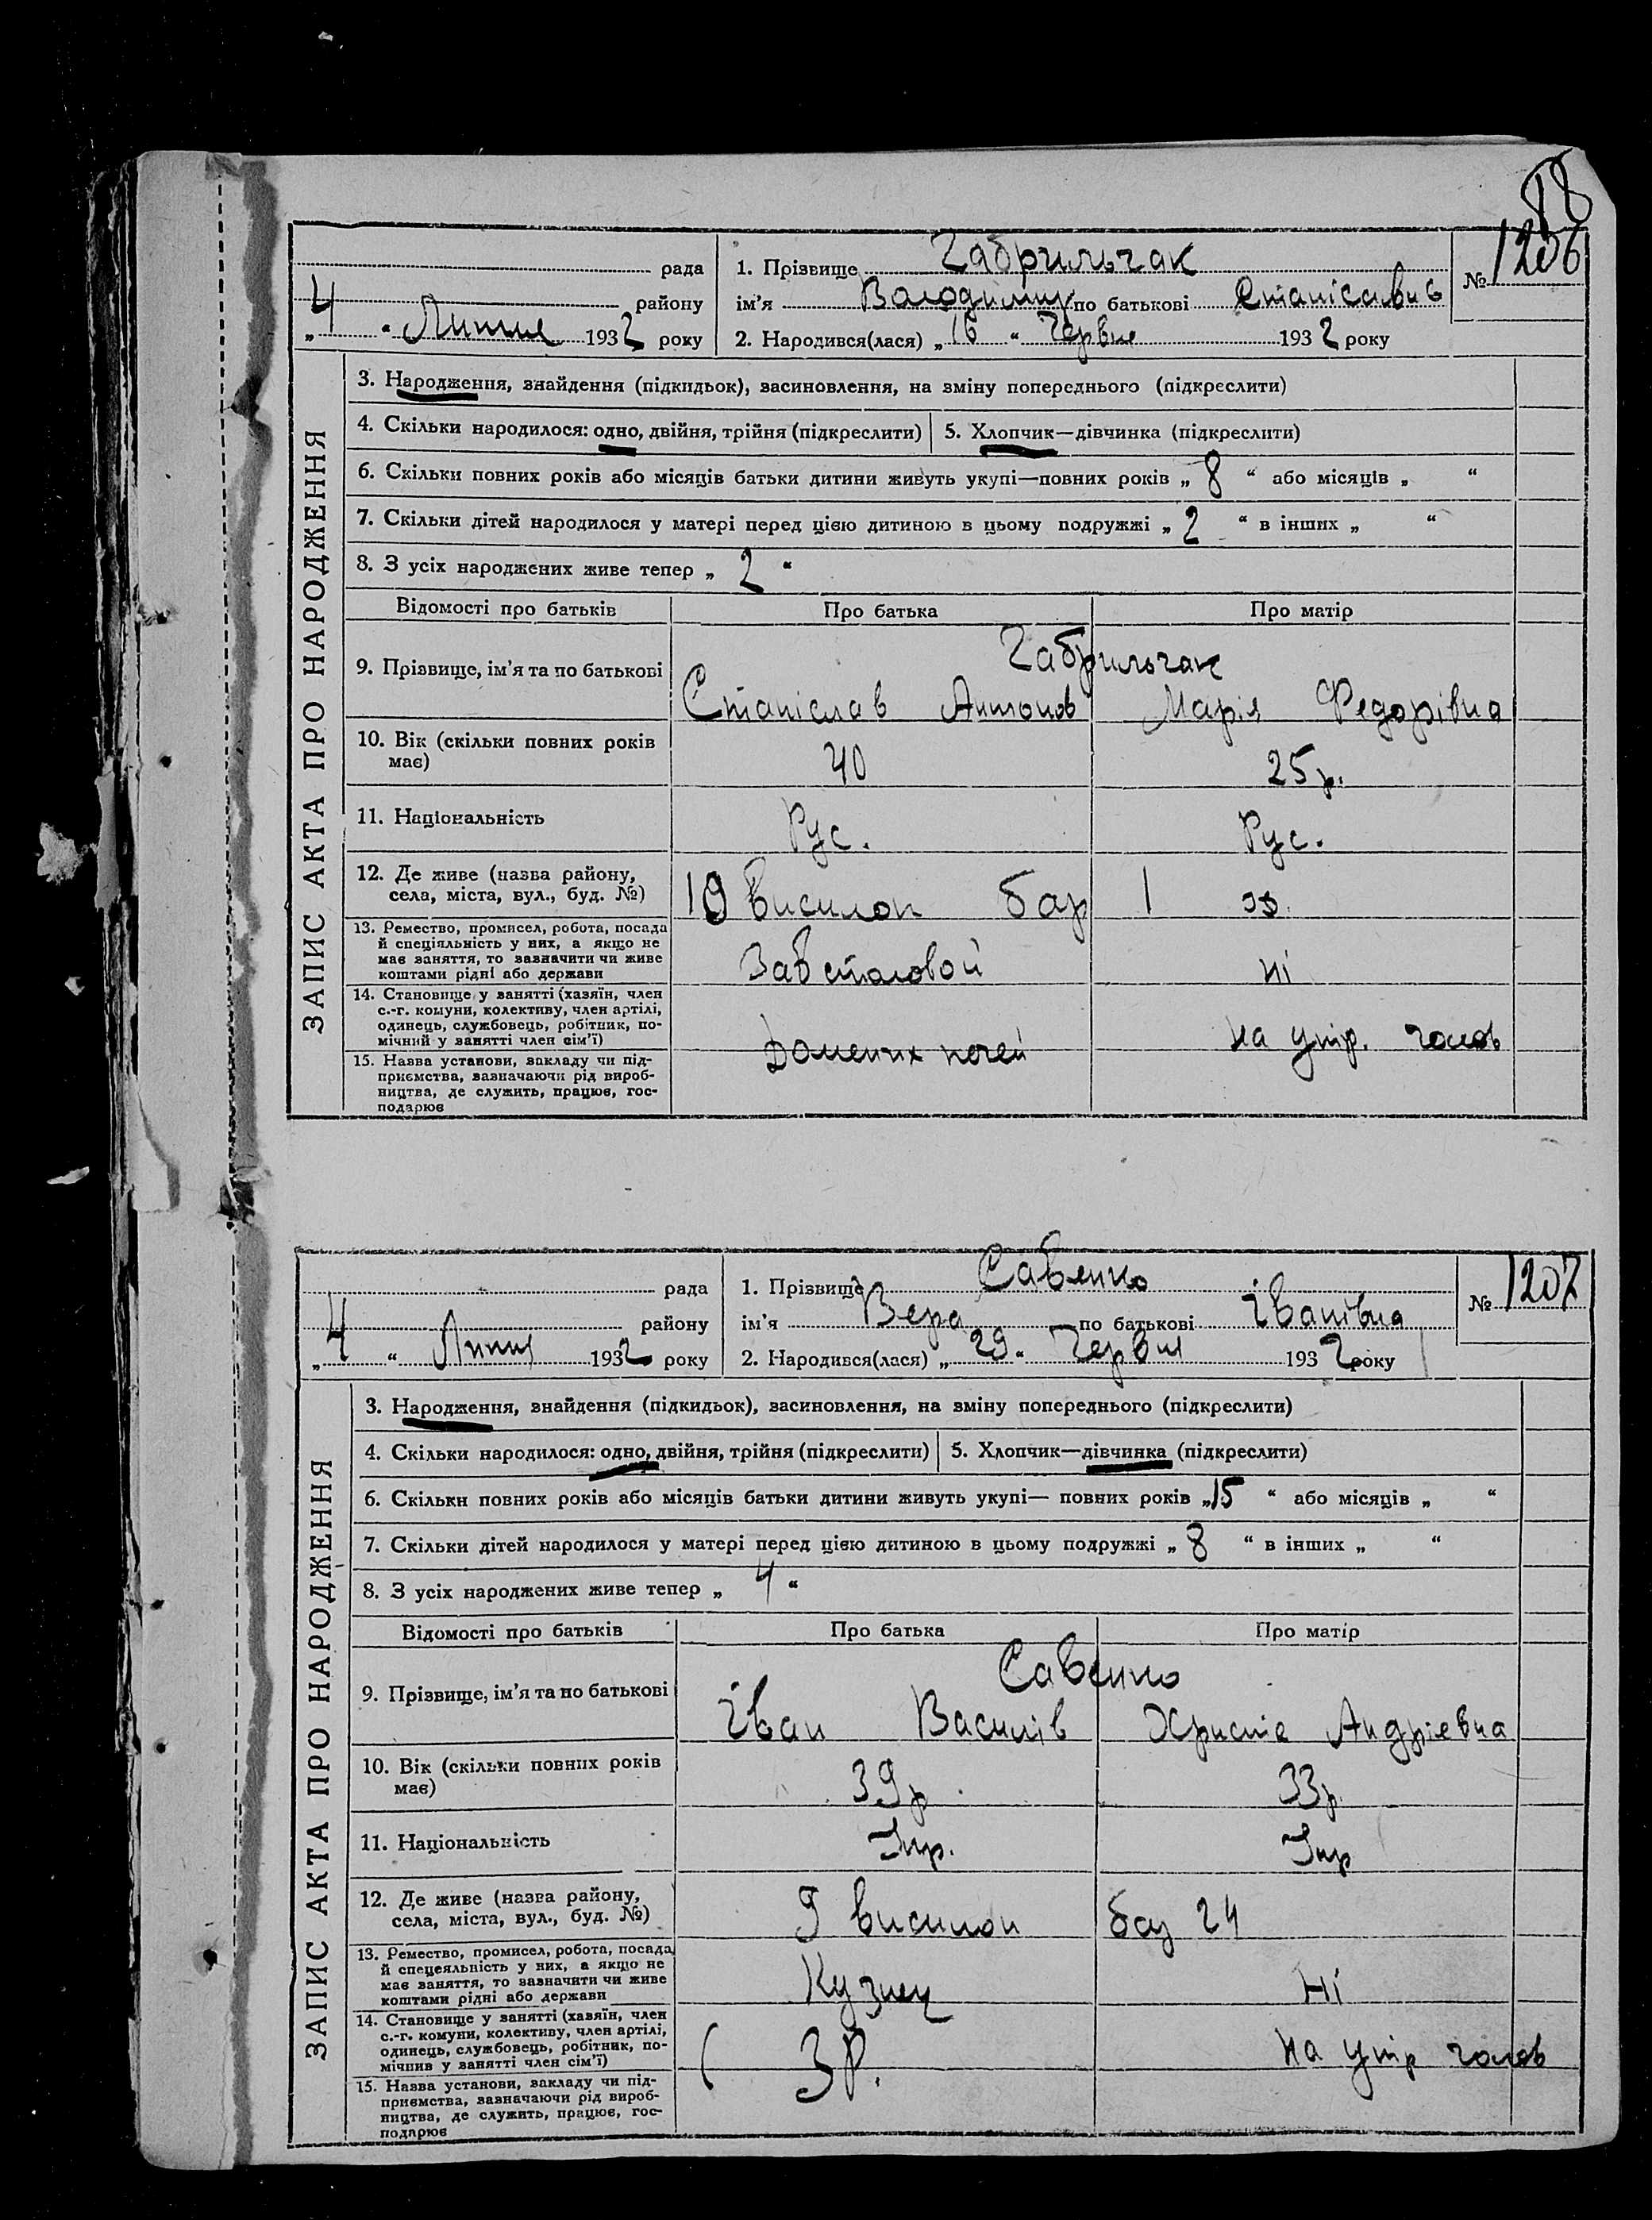 18
рада
району
„ 4 “ Липня 1932 року
1. Прізвище Габрильчак
ім'я Володимир по батькові Станіславів
2. Народився(лася) „ 16 “ Червня 1932 року
№ 1206
ЗАПИС АКТА ПРО НАРОДЖЕННЯ
3. Народження, знайдення (підкидьок), засиновлення, на зміну попереднього (підкреслити)
4. Скільки народилося: одно, двійня, трійня (підкреслити)
5. Хлопчик—дівчинка (підкреслити)
6. Скільки повних років або місяців батьки дитини живуть укупі—повних років „ 8 “ або місяців „ “
7. Скільки дітей народилося у матері перед цією дитиною в цьому подружжі „ 2 “ в інших „ “
8. З усіх народжених живе тепер „ 2 “
Відомості про батьків
Про батька
Про матір
9. Прізвище, ім'я та по батькові
Габрильчак
Станіслав Антонов
Марія Федорівна
10. Вік (скільки повних років
має)
40
25 р.
11. Національність
Рус.
Рус.
12. Де живе (назва району,
села, міста, вул., буд. №)
19 висилок бар 1
13. Ремество, промисел, робота, посада
й спеціяльність у них, а якщо не
має заняття, то зазначити чи живе
коштами рідні або держави
Завстоловой
ні
14. Становище у занятті (хазяїн, член
с.-г. комуни, колективу, член артілі,
одинець, службовець, робітник, по-
мічний у занятті член сім'ї)
Доменних печей
на утр. голов
15. Назва установи, закладу чи під-
приємства, зазначаючи рід вироб-
ництва, де служить, працює, гос-
подарює
рада
району
„ 4 “ Липня 1932 року
1. Прізвище Савенко
ім'я Вера по батькові Іванівна
2. Народився(лася) „ 29 “ Червня 1932 року
№ 1207
ЗАПИС АКТА ПРО НАРОДЖЕННЯ
3. Народження, знайдення (підкидьок), засиновлення, на зміну попереднього (підкреслити)
4. Скільки народилося: одно, двійня, трійня (підкреслити)
5. Хлопчик—дівчинка (підкреслити)
6. Скільки повних років або місяців батьки дитини живуть укупі— повних років „ 15 “ або місяців „ “
7. Скільки дітей народилося у матері перед цією дитиною в цьому подружжі „ 8 “ в інших „ “
8. З усіх народжених живе тепер „ 4 “
Відомості про батьків
Про батька
Про матір
9. Прізвище, ім'я та по батькові
Савенко
Іван Василів
Христіе Андріевна
10. Вік (скільки повних років
має)
39 р
33 р.
11. Національність
Укр.
Укр
12. Де живе (назва району,
села, міста, вул., буд. №)
9 висилок
24
13. Ремество, промисел, робота, посада
й спецеяльність у них, а якщо не
має заняття, то зазначити чи живе
коштами рідні або держави
Кузнец
Ні
14. Становище у занятті (хазяїн, член
с.-г. комуни, колективу, член артілі,
одинець, службовець, робітник, по-
мічнив у занятті член сім'ї)
З Р.
на утр голов
15. Назва установи, закладу чи під-
приємства, зазначаючи рід вироб-
ництва, де служить, працює, гос-
подарює